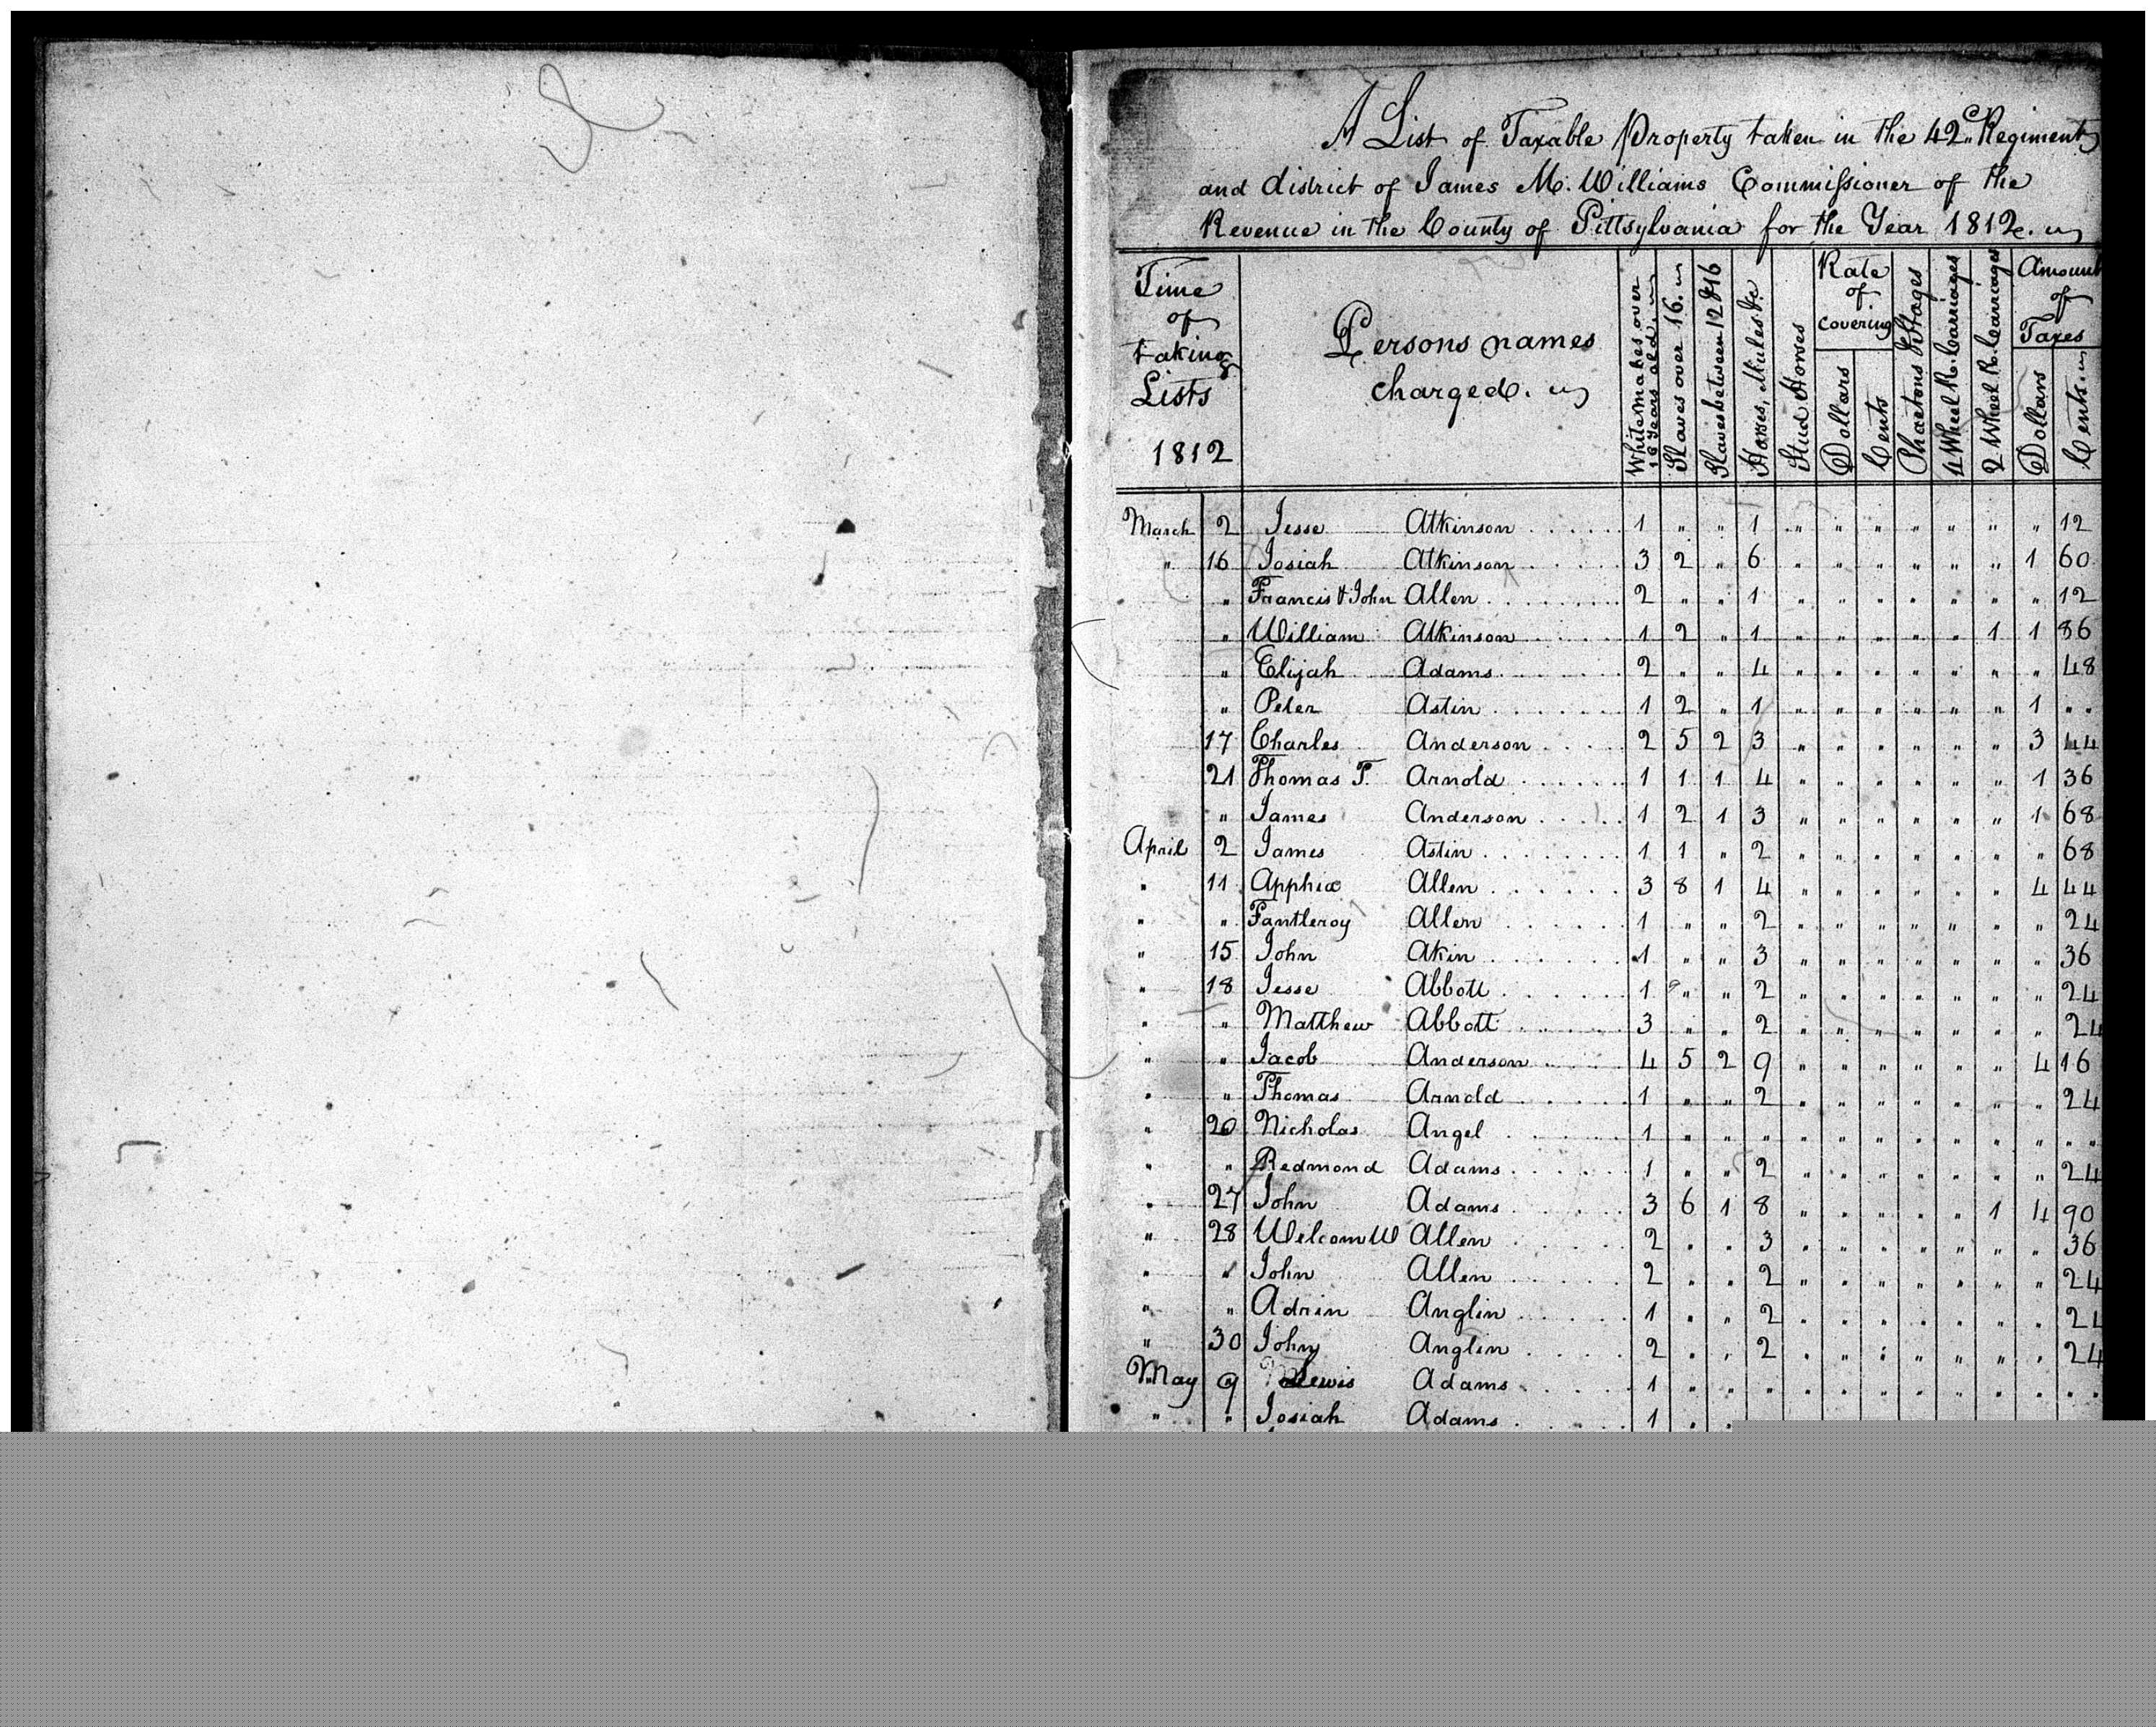 A List of Taxable Property taken in the 42d Regiment
and district of James M. Williams Commissioner of the
Revenue in the County of Pittsylvania for the Year 1812.
Time of taking Lists 1812 | Persons names charged. | White males over 16 Years old. | Slaves over 16. | Slaves between 12 & 16 | Horses, Mules &c. | Stud Horses | Rate of Covering Dollars Cents | Phaetons & Stages | 4 Wheel R. Carriages | 2 Wheel R. Carriages | Amount of Taxes Dollars Cents
March 2 Jesse Atkinson 1 " " 1 " " " " " " " 12
" 16 Josiah Atkinson 3 2 " 6 " " " " " " 1 60
" Francis & John Allen 2 " " 1 " " " " " " " 12
" William Atkinson 1 2 " 1 " " " " " 1 1 86
" Elijah Adams 2 " " 4 " " " " " " " 48
" Peter Astin 1 2 " 1 " " " " " " 1 " "
17 Charles Anderson 2 5 2 3 " " " " " " 3 44
21 Thomas T. Arnold 1 1 1 4 " " " " " " 1 36
" James Anderson 1 2 1 3 " " " " " " 1 68
April 2 James Astin 1 1 " 2 " " " " " " " 68
" 11 Apphia Allen 3 8 1 4 " " " " " " 4 44
" " Fantleroy Allen 1 " " 2 " " " " " " " 24
" 15 John Akin 1 " " 3 " " " " " " " 36
" 18 Jesse Abbott 1 " " 2 " " " " " " " 24
" " Matthew Abbott 3 " " 2 " " " " " " " 24
" " Jacob Anderson 4 5 2 9 " " " " " " 4 16
" " Thomas Arnold 1 " " 2 " " " " " " " 24
" 20 Nicholas Angel 1 " " " " " " " " " " " "
" " Redmond Adams 1 " " 2 " " " " " " " 24
" 27 John Adams 3 6 1 8 " " " " " 1 4 90
" 28 Welcom W Allen 2 " " 3 " " " " " " " 36
" " John Allen 2 " " 2 " " " " " " " 24
" " Adrin Anglin 1 " " 2 " " " " " " " 24
" 30 John Anglin 2 " " 2 " " " " " " " 24
May 9 Lewis Adams 1 " " " " " " " " " " " "
" " Josiah Adams 1 " "